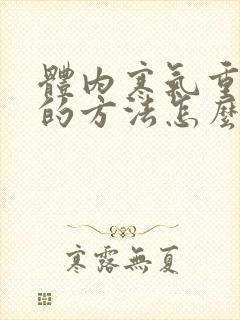 體内寒氣重
的方法怎麼
寒露無夏